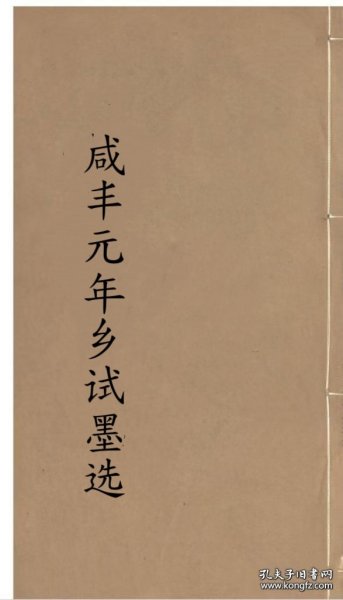 咸丰元年乡试墨选
孔夫子旧书网
www.kongfz.com